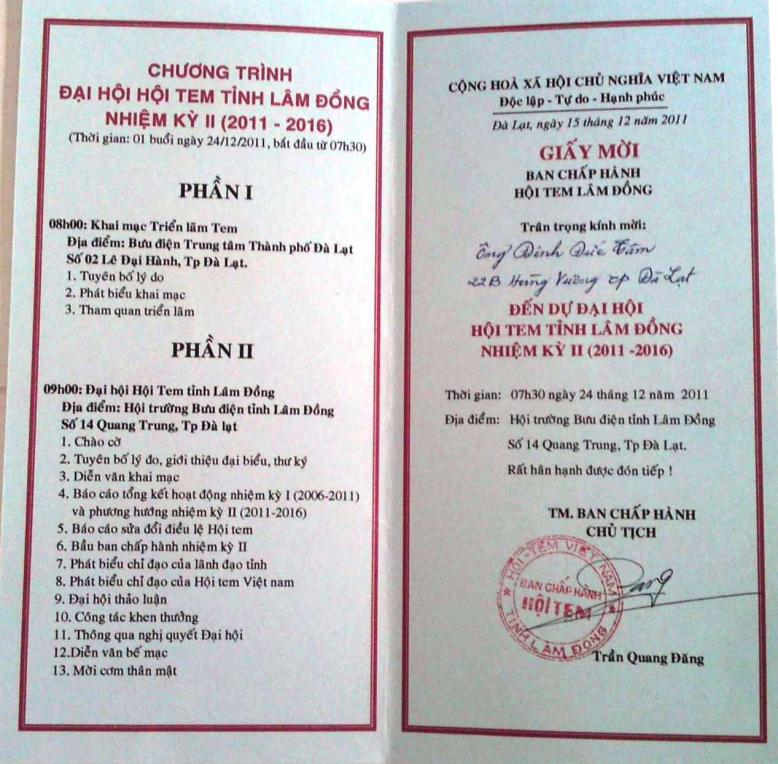 CHƯƠNG TRÌNH
ĐẠI HỘI HỘI TEM TỈNH LÂM ĐỒNG
NHIỆM KỲ II (2011 - 2016)
(Thời gian: 01 buổi ngày 24/12/2011, bắt đầu từ 07h30)
PHẦN I
08h00: Khai mạc Triển lãm Tem
Địa điểm: Bưu điện Trung tâm Thành phố Đà Lạt
Số 02 Lê Đại Hành, Tp Đà Lạt.
1. Tuyên bố lý do
2. Phát biểu khai mạc
3. Tham quan triển lãm
PHẦN II
09h00: Đại hội Hội Tem tỉnh Lâm Đồng
Địa điểm: Hội trường Bưu điện tỉnh Lâm Đồng
Số 14 Quang Trung, Tp Đà lạt
1. Chào cờ
2. Tuyên bố lý do, giới thiệu đại biểu, thư ký
3. Diễn văn khai mạc
4. Báo cáo tổng kết hoạt động nhiệm kỳ I (2006-2011)
và phương hướng nhiệm kỳ II (2011-2016)
5. Báo cáo sửa đổi điều lệ Hội tem
6. Bầu ban chấp hành nhiệm kỳ II
7. Phát biểu chỉ đạo của lãnh đạo tỉnh
8. Phát biểu chỉ đạo của Hội tem Việt nam
9. Đại hội thảo luận
10. Công tác khen thưởng
11. Thông qua nghị quyết Đại hội
12.Diễn văn bế mạc
13. Mời cơm thân mật
CỘNG HOÀ XÃ HỘI CHỦ NGHĨA VIỆT NAM
Độc lập - Tự do - Hạnh phúc
Đà Lạt, ngày 15 tháng 12 năm 2011
GIẤY MỜI
BAN CHẤP HÀNH
HỘI TEM LÂM ĐỒNG
Trân trọng kính mời:
Ông Đinh Đức Tâm
22B Hùng Vương TP Đà Lạt
ĐẾN DỰ ĐẠI HỘI
HỘI TEM TỈNH LÂM ĐỒNG
NHIỆM KỲ II (2011 -2016)
Thời gian: 07h30 ngày 24 tháng 12 năm 2011
Địa điểm: Hội trường Bưu điện tỉnh Lâm Đồng
Số 14 Quang Trung, Tp Đà Lạt.
Rất hân hạnh được đón tiếp !
TM. BAN CHẤP HÀNH
CHỦ TỊCH
HỘI-TEM VIỆT NAM
BAN CHẤP HÀNH
HỘI TEM
TỈNH LÂM ĐỒNG
Trần Quang Đăng